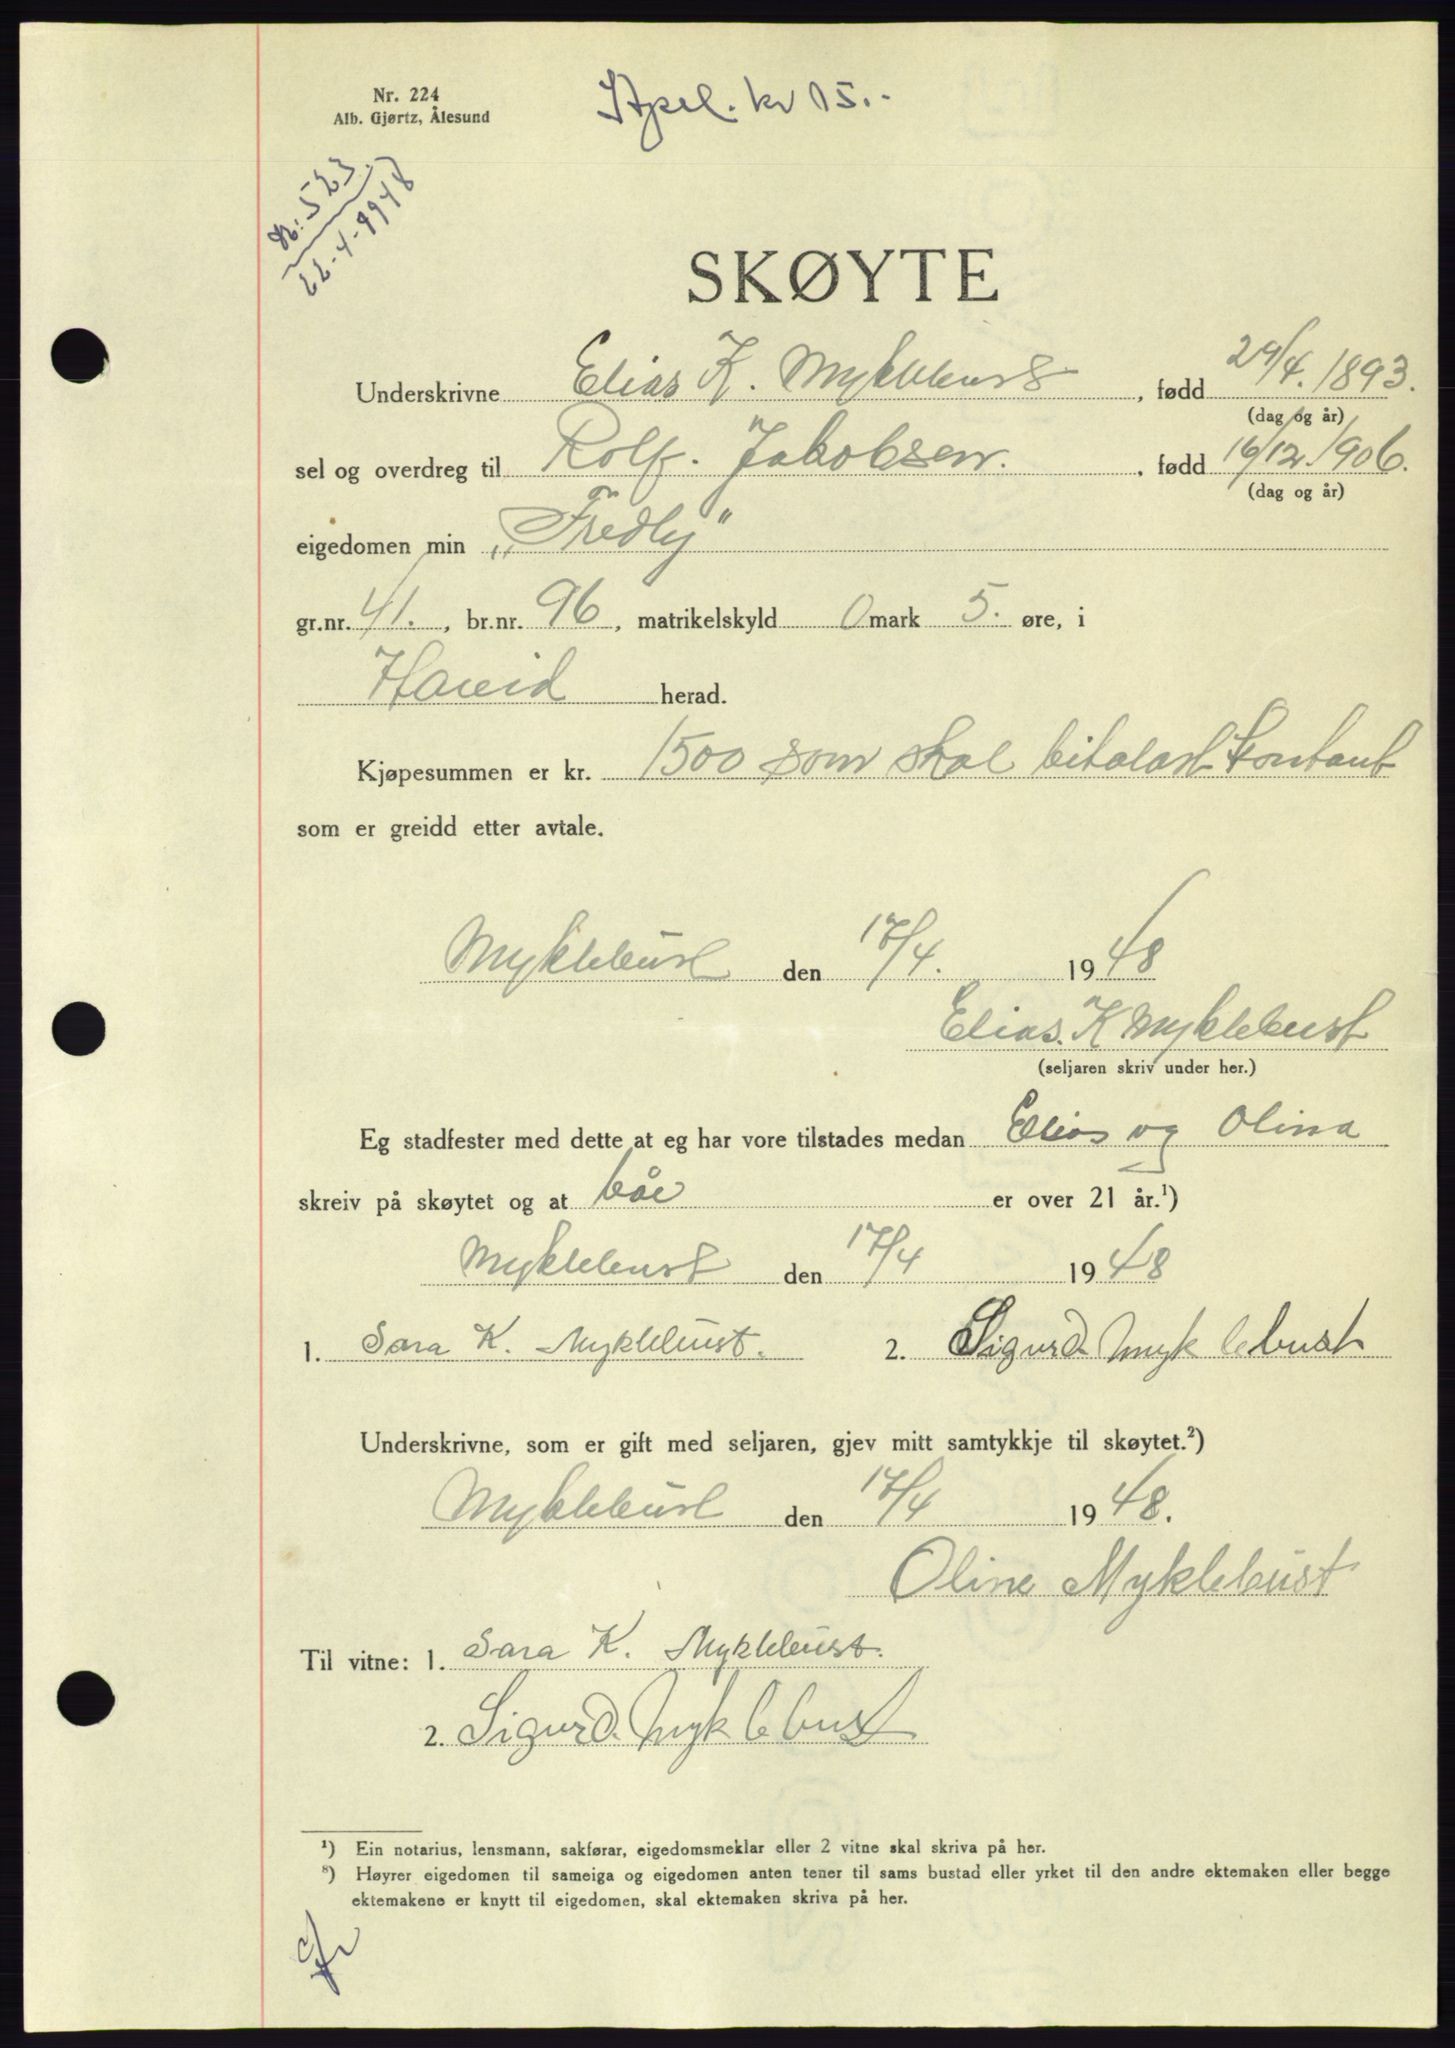 Nr. 224
Alb. Gjørtz, Ålesund
Stpel. kr 15.-
Nr: 523.
22-4-1948
SKØYTE
Underskrivne Elias K. Myklebust, fødd 29/4. 1893.
(dag og år)
sel og overdreg til Rolf. Jakobsen., fødd 16/12. 1906.
(dag og år)
eigedomen min „Fredly"
gr.nr. 41., br.nr. 96, matrikelskyld 0 mark 5. øre, i
Hareid herad.
Kjøpesummen er kr. 1500 som skal bitalast kontant
som er greidd etter avtale.
Myklebust den 17/4. 1948
Elias. K Myklebust
(seljaren skriv under her.)
Eg stadfester med dette at eg har vore tilstades medan Elias og Olina
skreiv på skøytet og at båe er over 21 år.¹)
Myklebust den 17/4 1948
1. Sara K. Myklebust. 2. Sigurd Myklebust
Underskrivne, som er gift med seljaren, gjev mitt samtykkje til skøytet.²)
Myklebust den 17/4 1948.
Oline Myklebust
Til vitne: 1. Sara K. Myklebust.
2. Sigurd. Myklebust
¹) Ein notarius, lensmann, sakførar, eigedomsmeklar eller 2 vitne skal skriva på her.
⁸) Høyrer eigedomen til sameiga og eigedomen anten tener til sams bustad eller yrket til den andre ektemaken eller begge
ektemakene er knytt til eigedomen, skal ektemaken skriva på her.